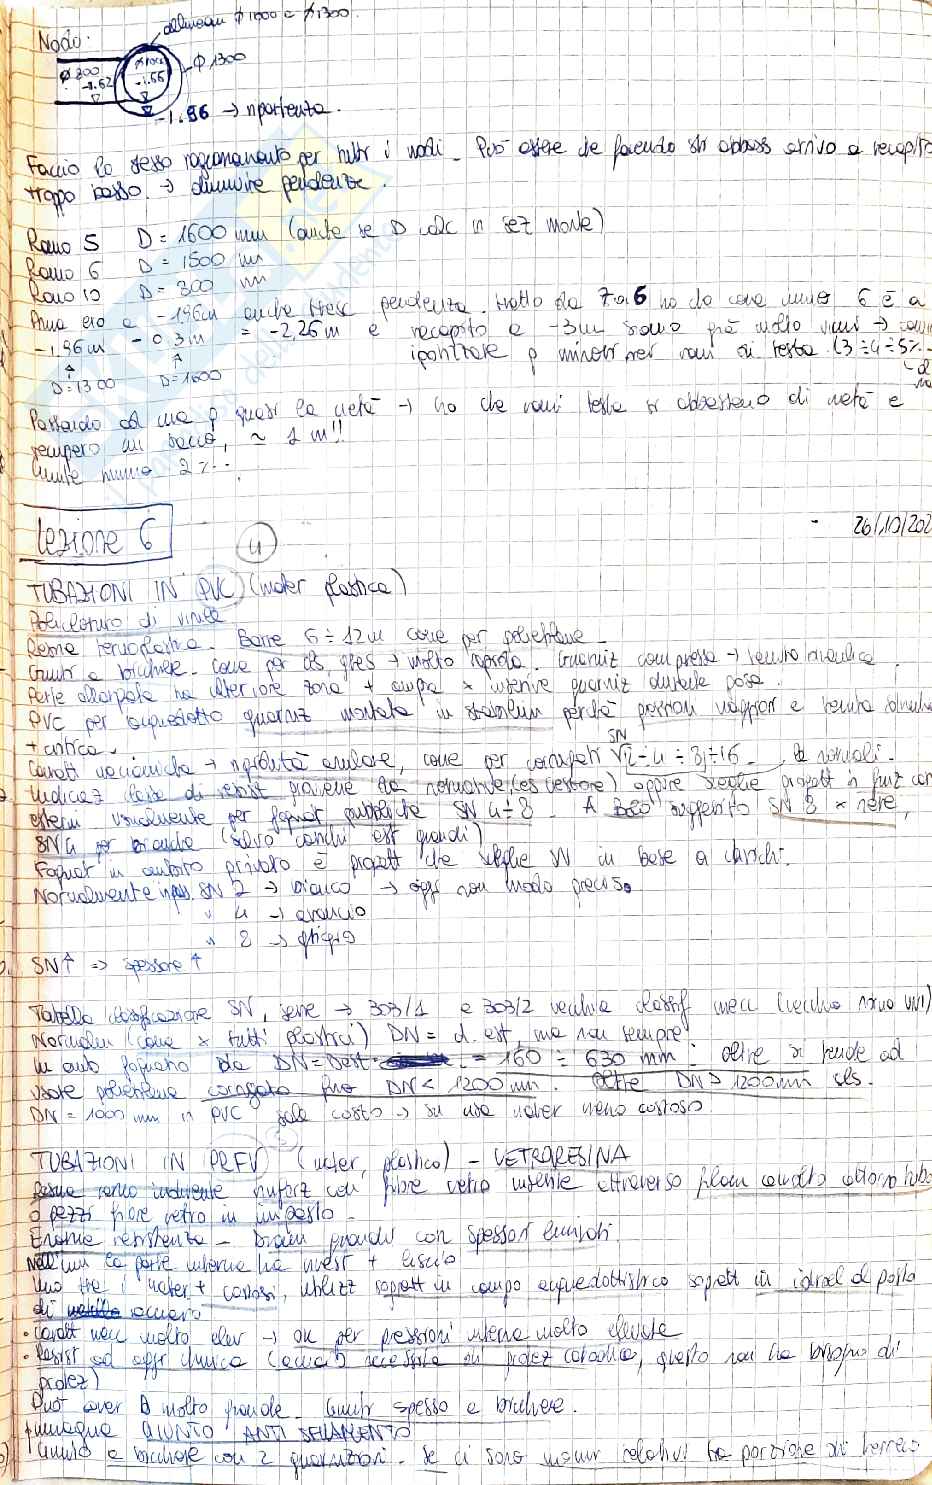 Nodo:
allineam ø 1000 e ø 1300.
ø 800
-1.62
-1.66
ø 1300
-1.96 → ripartenza.
Faccio lo stesso ragionamento per tutti i nodi. Può essere che facendo sti abbass arrivo a recapito
troppo basso → diminuire pendenze.
Ramo 5 D = 1600 mm (anche se D calc in sez monte)
Ramo 6 D = 1500 mm
Ramo 10 D = 300 mm
Prima ero a -1,96m anche pendenza tratto da 7 a 6 ho da 6 è a
-1,96 m - 0,3 m = -2,26 m e recapito a -3m sono già molto vicini →
ipotizzare p minori per rami di testa (3 ÷ 4 ÷ 5‰
D=1300 D=1600
Passando ad una p quasi la metà → ho che rami testa si abbassano di metà e
recupero un sacco, ≈ 1 m!!
limite minimo 2‰
Lezione 6
4
26/10/202
TUBAZIONI IN PVC (mater plastica)
Policloruro di vinile
Resina termoplastica. Barre 6 ÷ 12m come per polietilene.
Giunti a bicchiere. come per cls, gres → molto rapido. Guarniz compressa → tenuta idraulica.
Parte allargata ha ulteriore zona + ampia x inserire guarniz durante posa.
PVC per acquedotto guarniz montata in stabilim perché pressioni maggiori e tenuta idraulica
+ critica.
Caratt meccaniche → rigidità anulare, come per corrugati SN 2 ÷ 4 ÷ 8 ÷ 16 le normali.
Indicaz classe di resist proviene da normative (es gestore) oppure sceglie progett in funz cari
esterni usualmente per fognat pubbliche SN 4 ÷ 8. A suggerito SN 8 x rete,
SN4 per bianche (salvo carichi est grandi)
Fognat in ambito privato è progett che sceglie SN in base a carichi.
Normalmente SN 2 → bianco → oggi non modo preciso
" 4 → arancio
" 8 → grigio
SN↑ => spessore ↑
Tabella classificazione SN, serie → 303/1 e 303/2 vecchia classif mecc (vecchia norma UNI)
Normalm (come x tutti plastici) DN = d. est ma non sempre
In amb fognario da DN = Dest = 160 ÷ 630 mm: oltre si tende ad
usare polietilene corrugato fino DN < 1200 mm. Oltre DN > 1200 mm cls.
DN = 1000 mm in PVC sale costo → si usa mater meno costoso
TUBAZIONI IN PRFV (mater, plastico) - VETRORESINA
Resina termo indurente rinforz con fibre vetro inserite attraverso filam avvolto attorno tubo
o pezzi fibre vetro in impasto.
Enorme resistenza - Diam grandi con spessori limitati.
Nell'imm la parte interna ha rivest + liscio
Uno tra i mater + costosi, utilizz sopratt in campo acquedottistico sopratt in idroel al posto
di acciaio
• Caratt mecc molto elev → ok per pressioni interne molto elevate
• Resist ad aggr chimica (acciaio necessita di protez catodica, questo non ha bisogno di
protez)
Può aver D molto grande. Giunti spesso a bicchiere.
GIUNTO ANTI SFILAMENTO
Giunto a bicchiere con 2 guarnizioni. Se ci sono relativi ha porzione di terreno